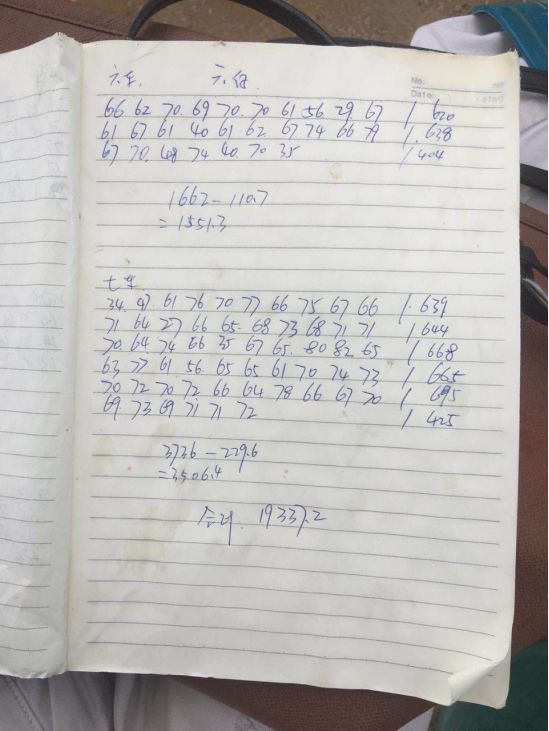 六车 六组
No.
Date
66 62 70. 69 70. 70 61 56 29 67 / 620
61 67 61 40 61 62 67 74 66 79 / 638
67 70. 48 74 40. 70 35 / 404
1662-110.7
=1551.3
七车
34. 47. 61 76 70 77 66 75 67 66 / 639
71 64 27 66 65. 68 73 68 71 71 / 644
70. 64 74 66 35 67 65. 80 82 65 / 668
63 77 61 56. 65 65 61 70 74 73 / 665
70 72 70 72. 66 64 78 66 67 70 / 695
69 73 69 71 71 72 / 425
3736-229.6
=3506.4
19337.2